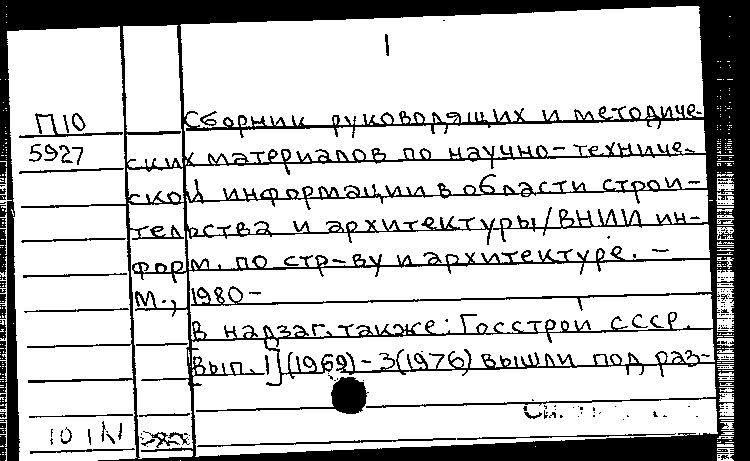 1
П10 Сборник руководящих и методиче-
5927 ских материалов по научно-техниче-
ской информации в области строи-
тельства и архитектуры/ВНИИ ин-
форм. по стр-ву и архитектуре. –
М., 1980–
В надзаг. также: Госстрой СССР.
[Вып. 1] (1969) – 3(1976) вышли под раз-
См.